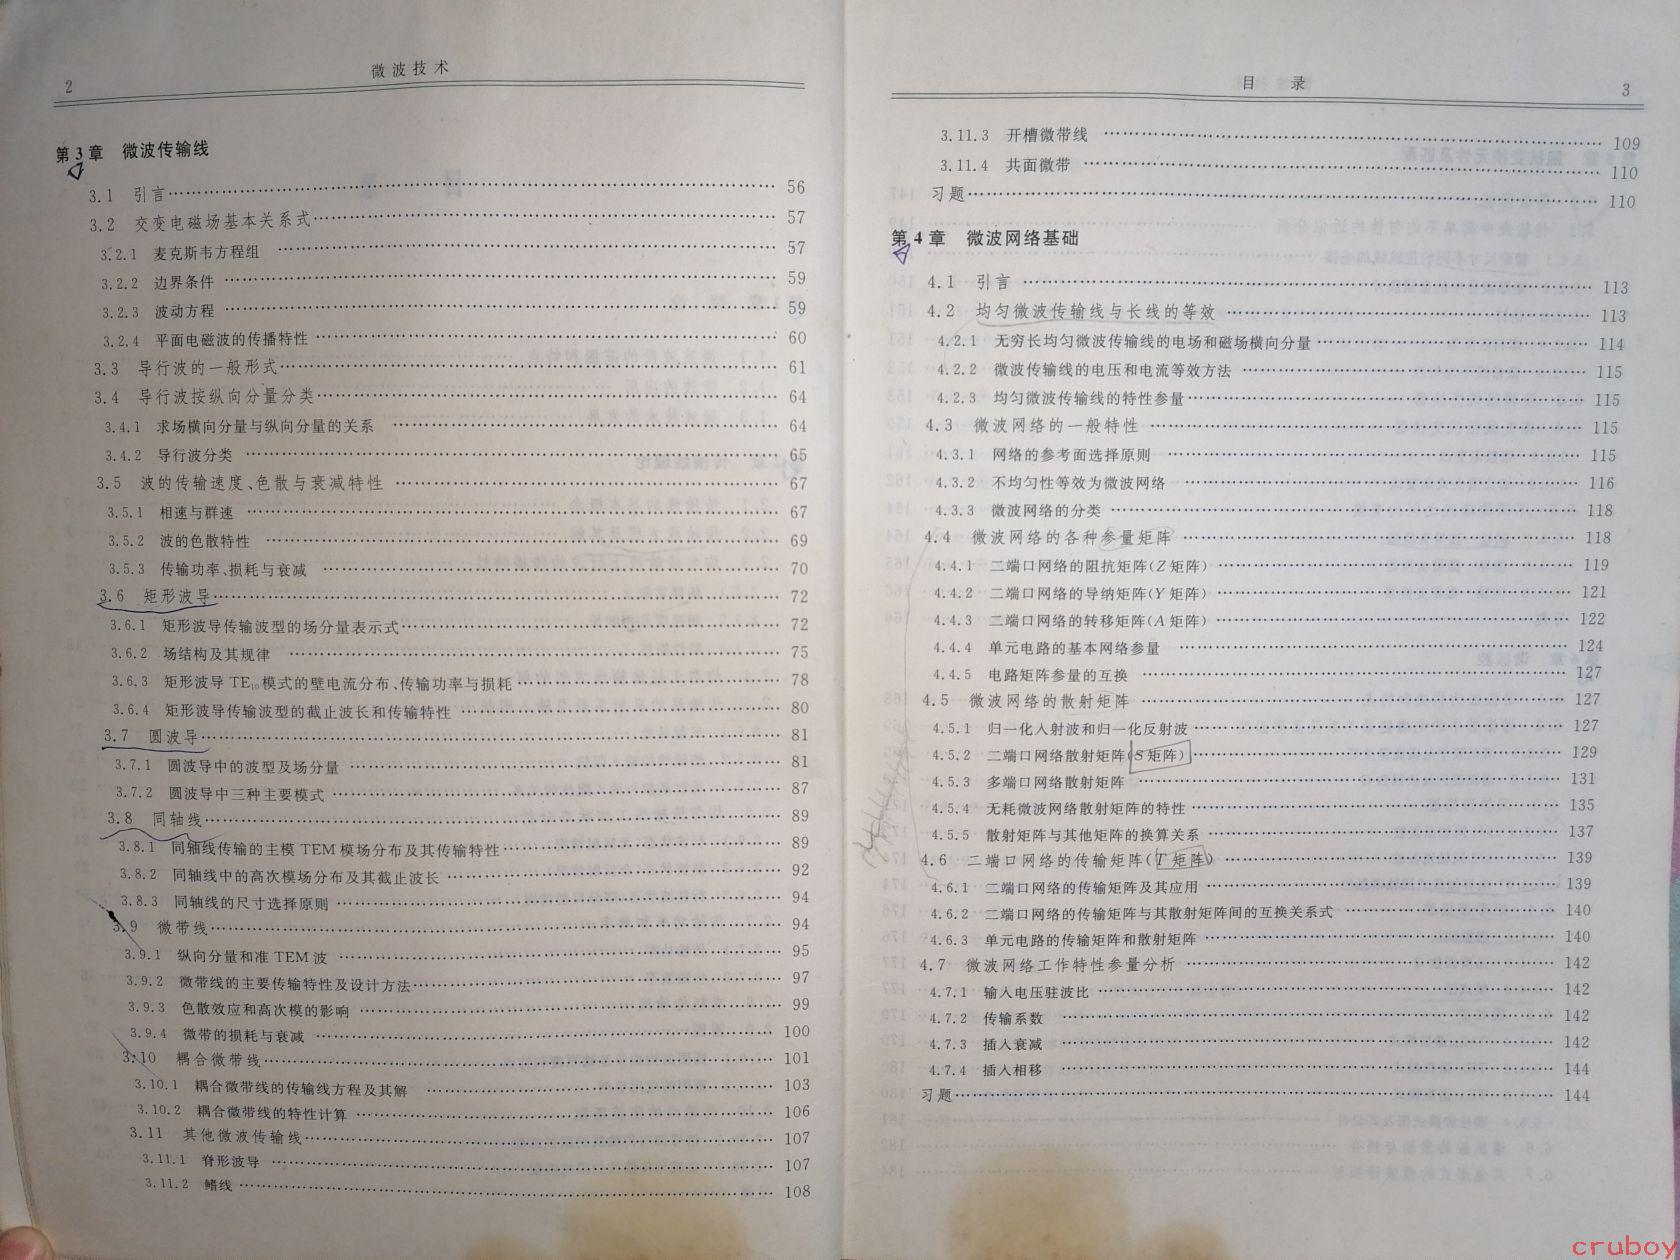 2
微波技术
第3章 微波传输线
3.1 引言 56
3.2 交变电磁场基本关系式 57
3.2.1 麦克斯韦方程组 57
3.2.2 边界条件 59
3.2.3 波动方程 59
3.2.4 平面电磁波的传播特性 60
3.3 导行波的一般形式 61
3.4 导行波按纵向分量分类 64
3.4.1 求场横向分量与纵向分量的关系 64
3.4.2 导行波分类 65
3.5 波的传输速度、色散与衰减特性 67
3.5.1 相速与群速 67
3.5.2 波的色散特性 69
3.5.3 传输功率、损耗与衰减 70
3.6 矩形波导 72
3.6.1 矩形波导传输波型的场分量表示式 72
3.6.2 场结构及其规律 75
3.6.3 矩形波导TE₁₀模式的壁电流分布、传输功率与损耗 78
3.6.4 矩形波导传输波型的截止波长和传输特性 80
3.7 圆波导 81
3.7.1 圆波导中的波型及场分量 81
3.7.2 圆波导中三种主要模式 87
3.8 同轴线 89
3.8.1 同轴线传输的主模TEM模场分布及其传输特性 89
3.8.2 同轴线中的高次模场分布及其截止波长 92
3.8.3 同轴线的尺寸选择原则 94
3.9 微带线 94
3.9.1 纵向分量和准TEM波 95
3.9.2 微带线的主要传输特性及设计方法 97
3.9.3 色散效应和高次模的影响 99
3.9.4 微带的损耗与衰减 100
3.10 耦合微带线 101
3.10.1 耦合微带线的传输线方程及其解 103
3.10.2 耦合微带线的特性计算 106
3.11 其他微波传输线 107
3.11.1 脊形波导 107
3.11.2 鳍线 108
目 录
3
3.11.3 开槽微带线 109
3.11.4 共面微带 110
习题 110
第4章 微波网络基础
4.1 引言 113
4.2 均匀微波传输线与长线的等效 113
4.2.1 无穷长均匀微波传输线的电场和磁场横向分量 114
4.2.2 微波传输线的电压和电流等效方法 115
4.2.3 均匀微波传输线的特性参量 115
4.3 微波网络的一般特性 115
4.3.1 网络的参考面选择原则 115
4.3.2 不均匀性等效为微波网络 116
4.3.3 微波网络的分类 118
4.4 微波网络的各种参量矩阵 118
4.4.1 二端口网络的阻抗矩阵(Z矩阵) 119
4.4.2 二端口网络的导纳矩阵(Y矩阵) 121
4.4.3 二端口网络的转移矩阵(A矩阵) 122
4.4.4 单元电路的基本网络参量 124
4.4.5 电路矩阵参量的互换 127
4.5 微波网络的散射矩阵 127
4.5.1 归一化入射波和归一化反射波 127
4.5.2 二端口网络散射矩阵(S矩阵) 129
4.5.3 多端口网络散射矩阵 131
4.5.4 无耗微波网络散射矩阵的特性 135
4.5.5 散射矩阵与其他矩阵的换算关系 137
4.6 二端口网络的传输矩阵(T矩阵) 139
4.6.1 二端口网络的传输矩阵及其应用 139
4.6.2 二端口网络的传输矩阵与其散射矩阵间的互换关系式 140
4.6.3 单元电路的传输矩阵和散射矩阵 140
4.7 微波网络工作特性参量分析 142
4.7.1 输入电压驻波比 142
4.7.2 传输系数 142
4.7.3 插入衰减 142
4.7.4 插入相移 144
习题 144
cruboy